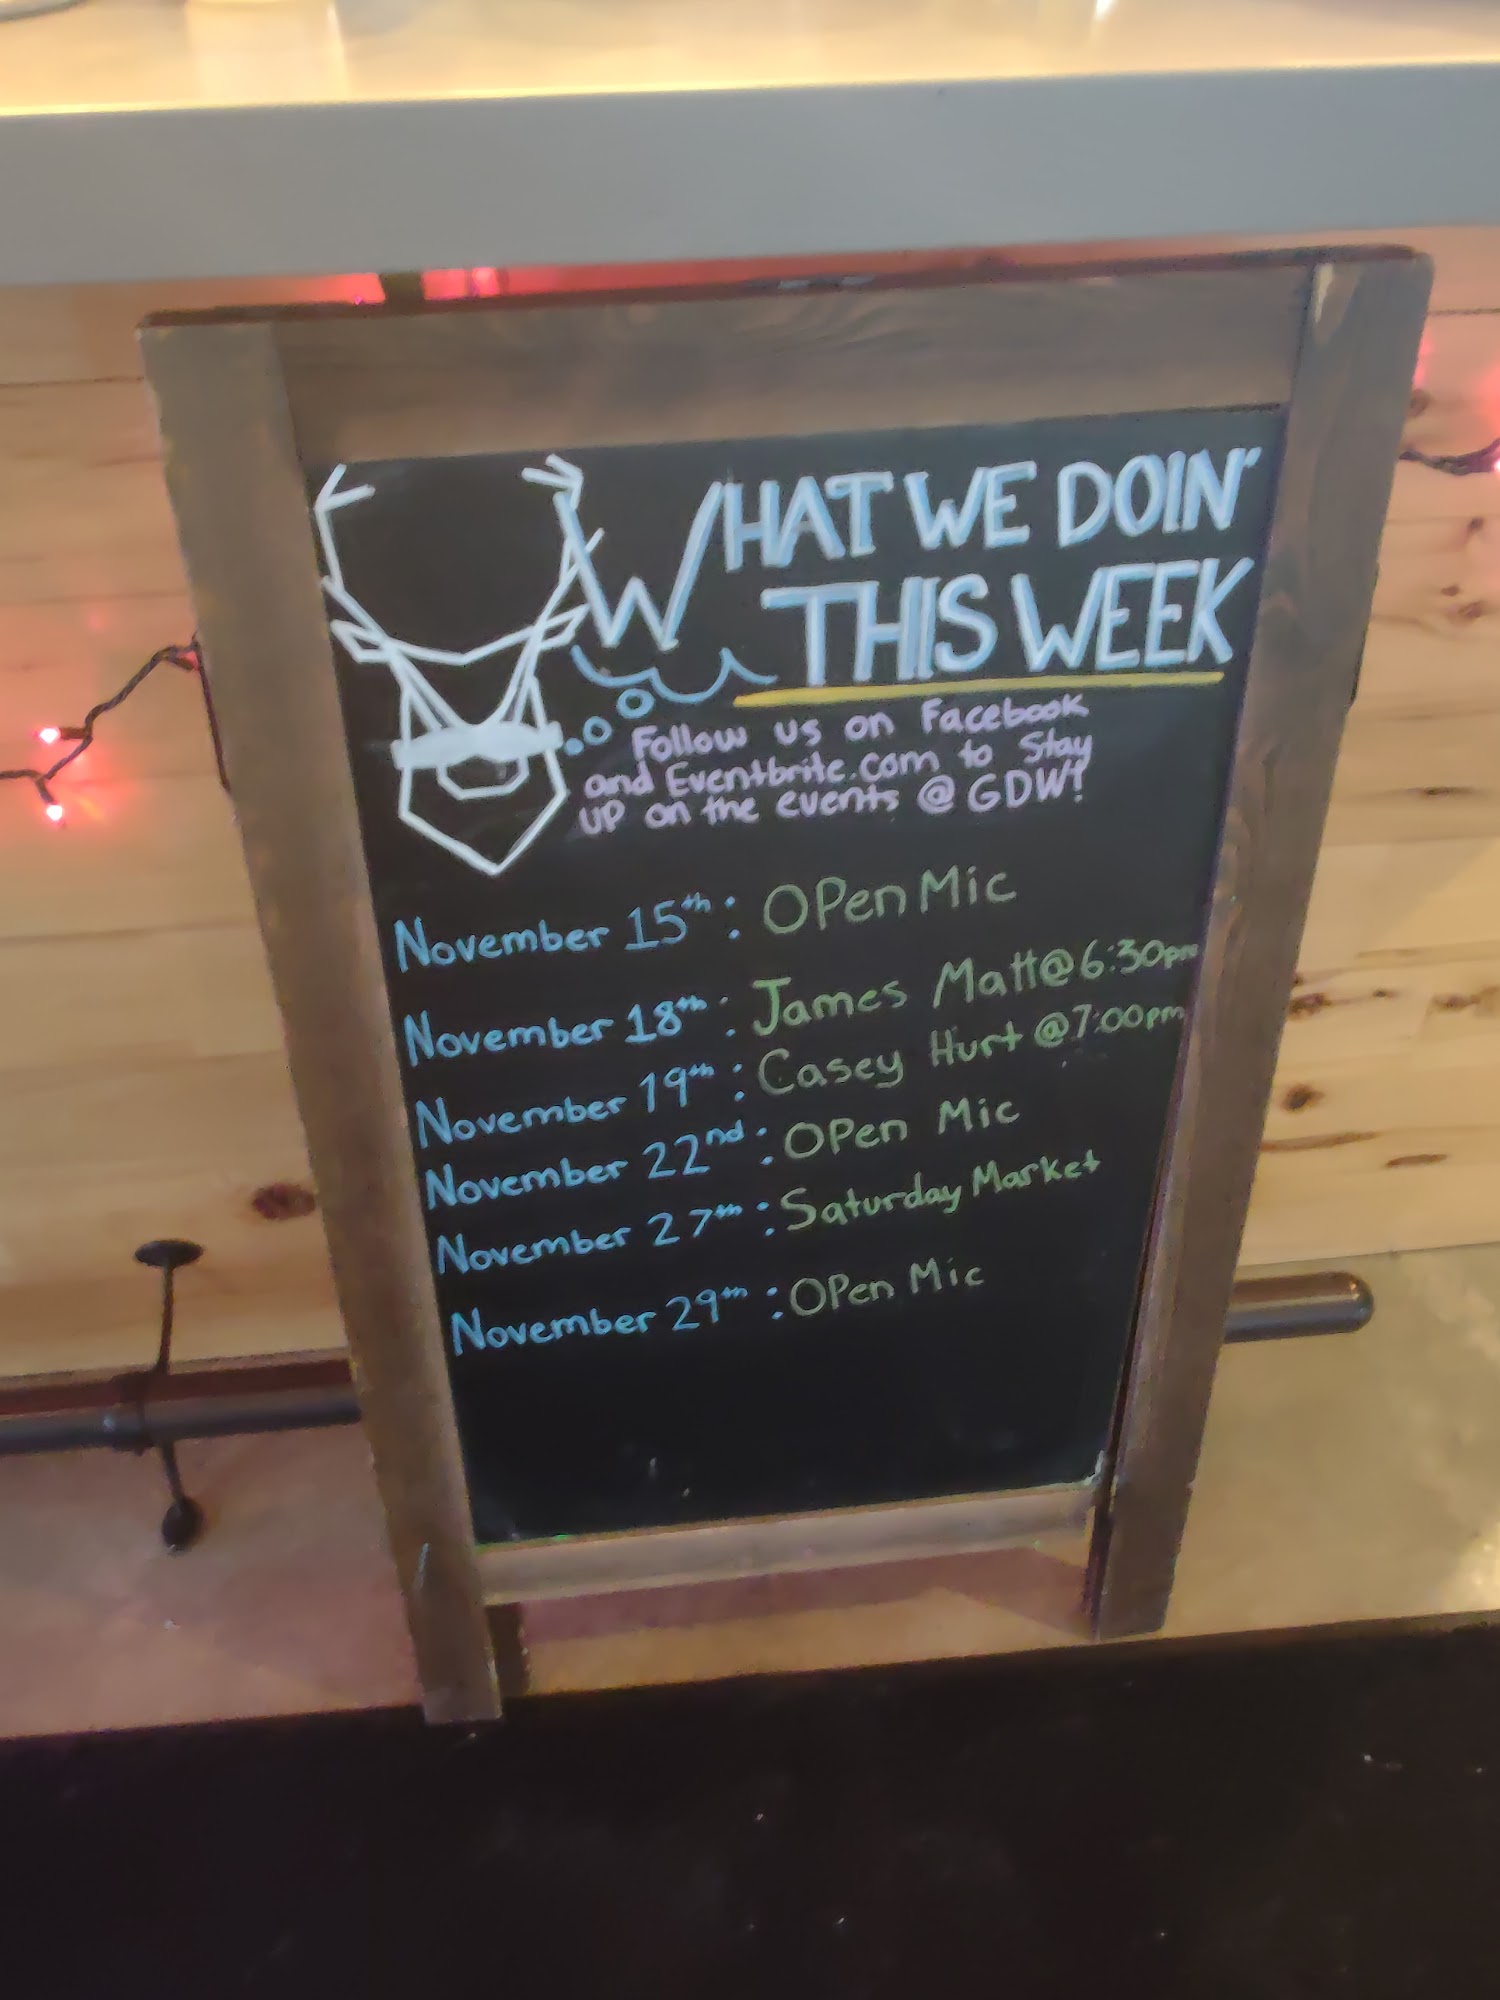 WHAT WE DOIN'
THIS WEEK
Follow us on Facebook
and Eventbrite.com to Stay
UP on the events @ GDW!
November 15th: OPen Mic
November 18th: James Matt@6:30pm
November 19th: Casey Hurt @7:00pm
November 22nd: OPen Mic
November 27th: Saturday Market
November 29th: OPen Mic